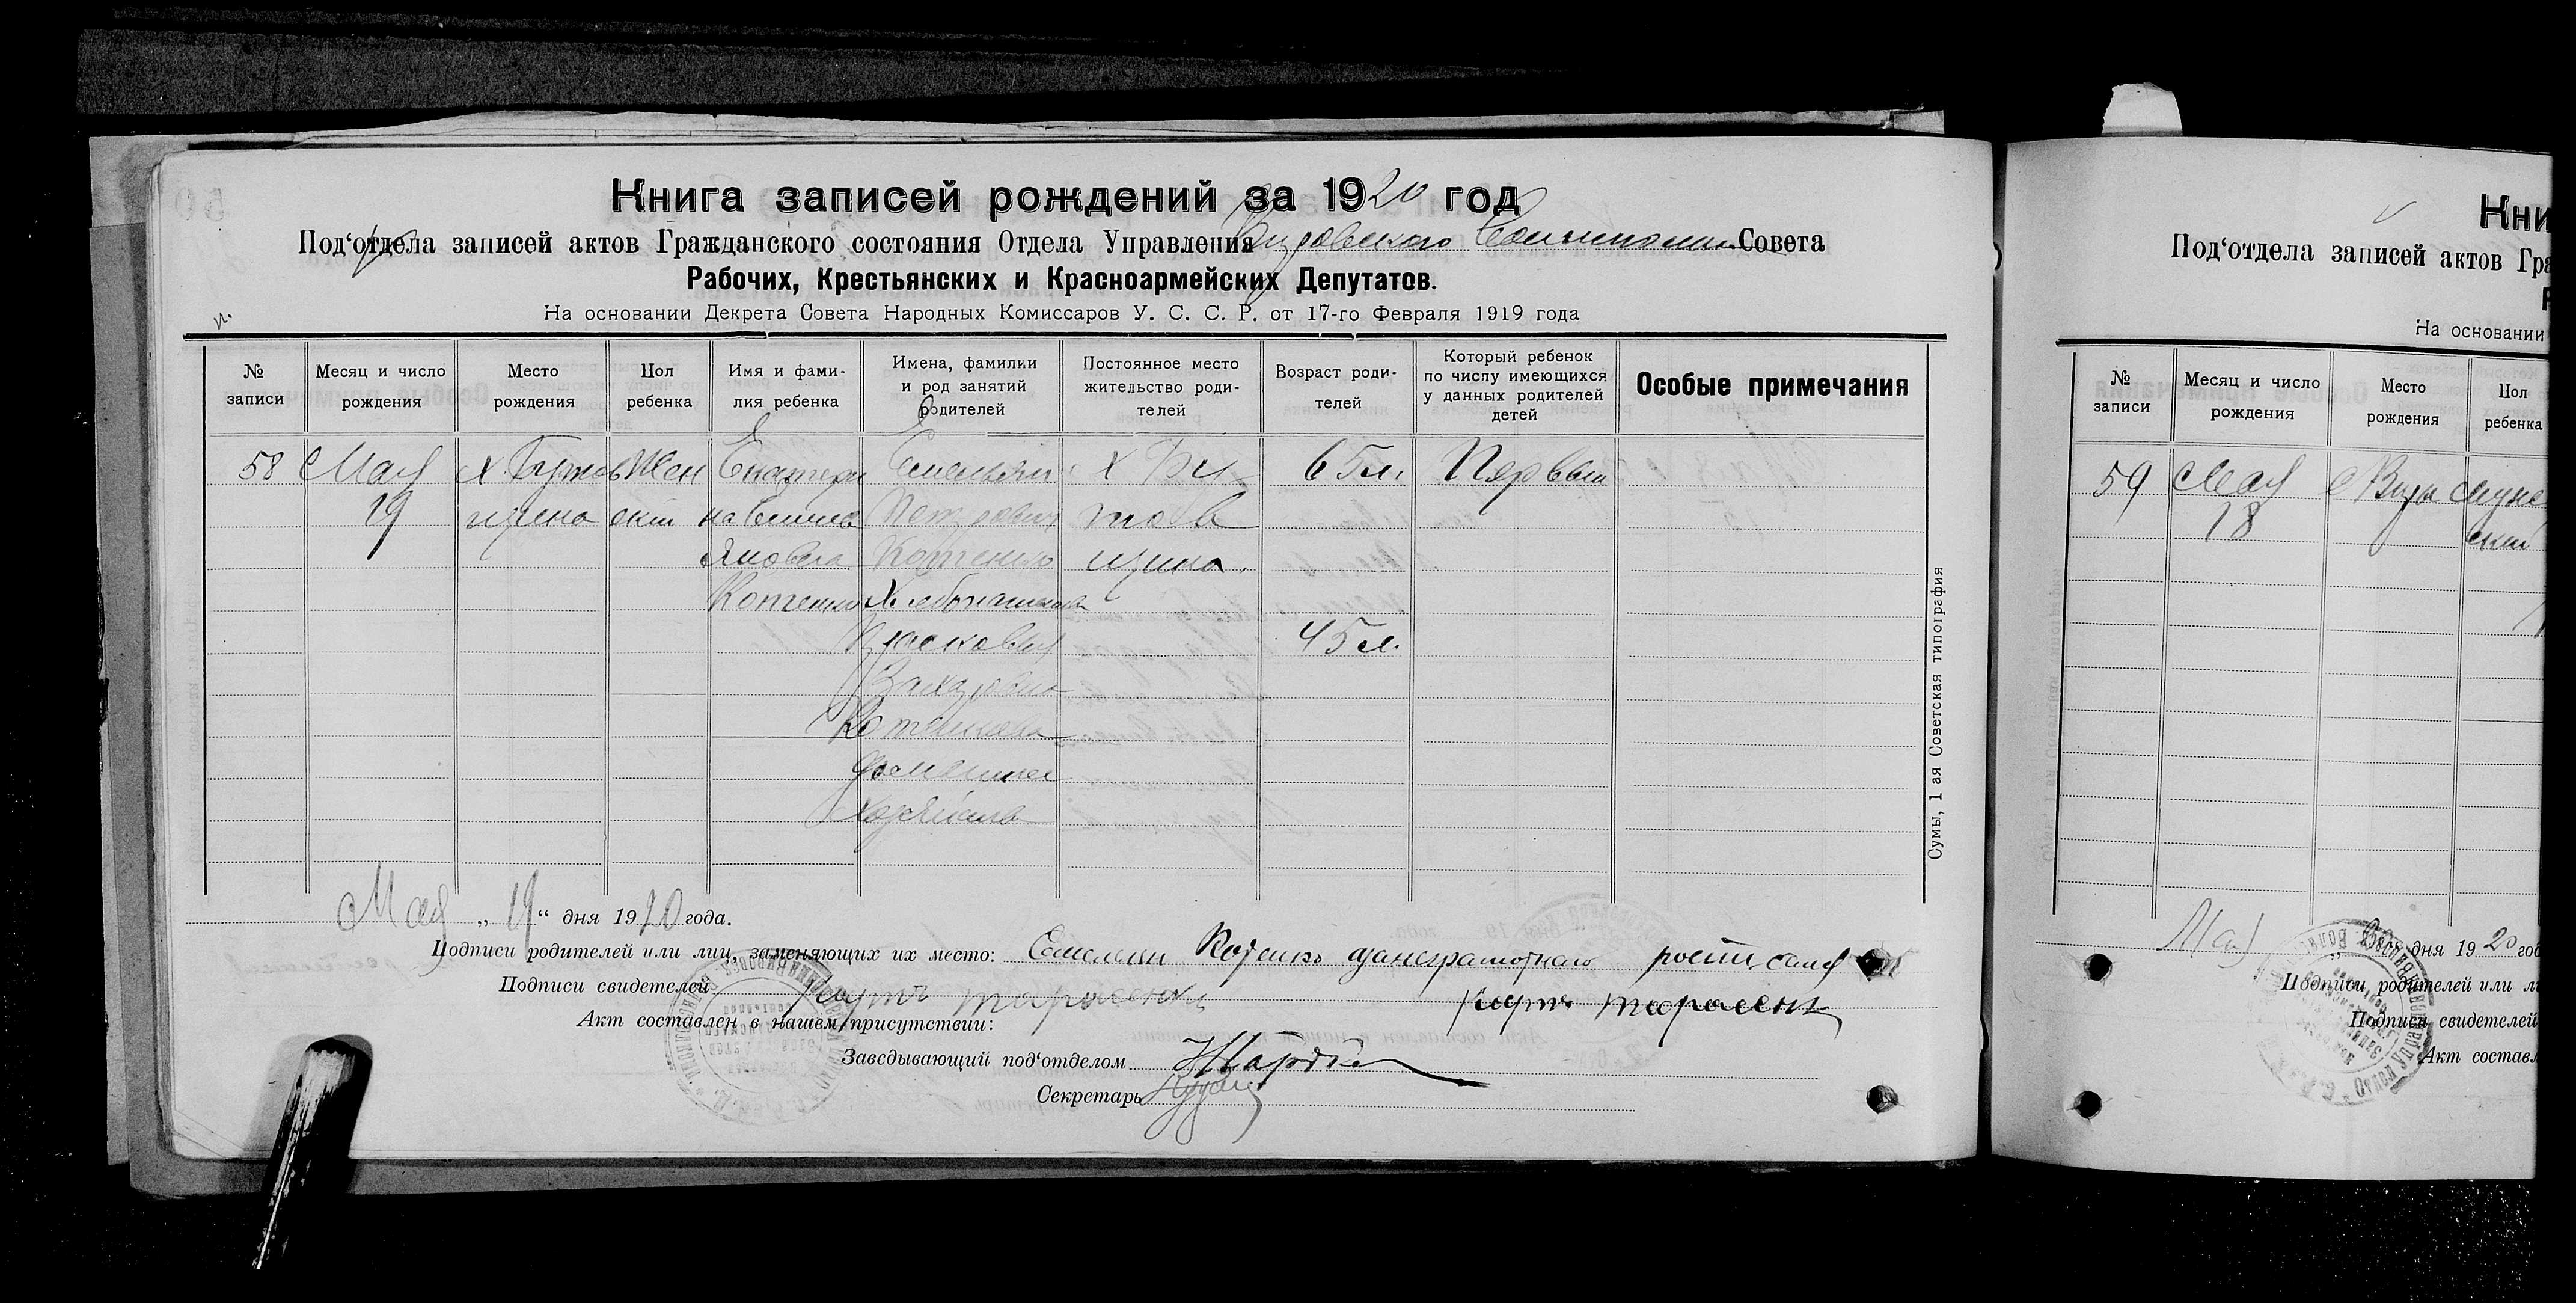 Книга записей рождений за 1920 год
Под‘отдела записей актов Гражданского состояния Отдела Управления Совета
Рабочих, Крестьянских и Красноармейских Депутатов.
На основании Декрета Совета Народных Комиссаров У. С. С. Р. от 17-го Февраля 1919 года
№ записи Месяц и число рождения Место рождения Пол ребенка Имя и фами-лия ребенка Имена, фамилии и род занятий родителей Постоянное место жительство роди-телей Возраст роди-телей Который ребенок по числу имеющихся у данных родителей детей Особые примечания
58 Мая Х Жен Екатери Емельян Х 65 л. Первый
19 щина ский на Емель Петрович това
яновна Котенко щина.
Котенко Хлебопашець
Прасковия 45 л.
Захаровна
Котенкова
домашнее
хозяйство
Сумы, 1 ая Советская типография
Мая „19“ дня 1920 года.
Подписи родителей или лиц, заменяющих их место: Емельян Котенко
Подписи свидетелей
Акт составлен в нашем присутствии:
Заведывающий под‘отделом
Секретарь
Кни
Под‘отдела записей актов Гра
На основании
№ записи Месяц и число рождения Место рождения Пол ребенка
59 Мая
18 ский
Мая дня 1920 год
Подписи родителей или л
Подписи свидетелей
Акт составл